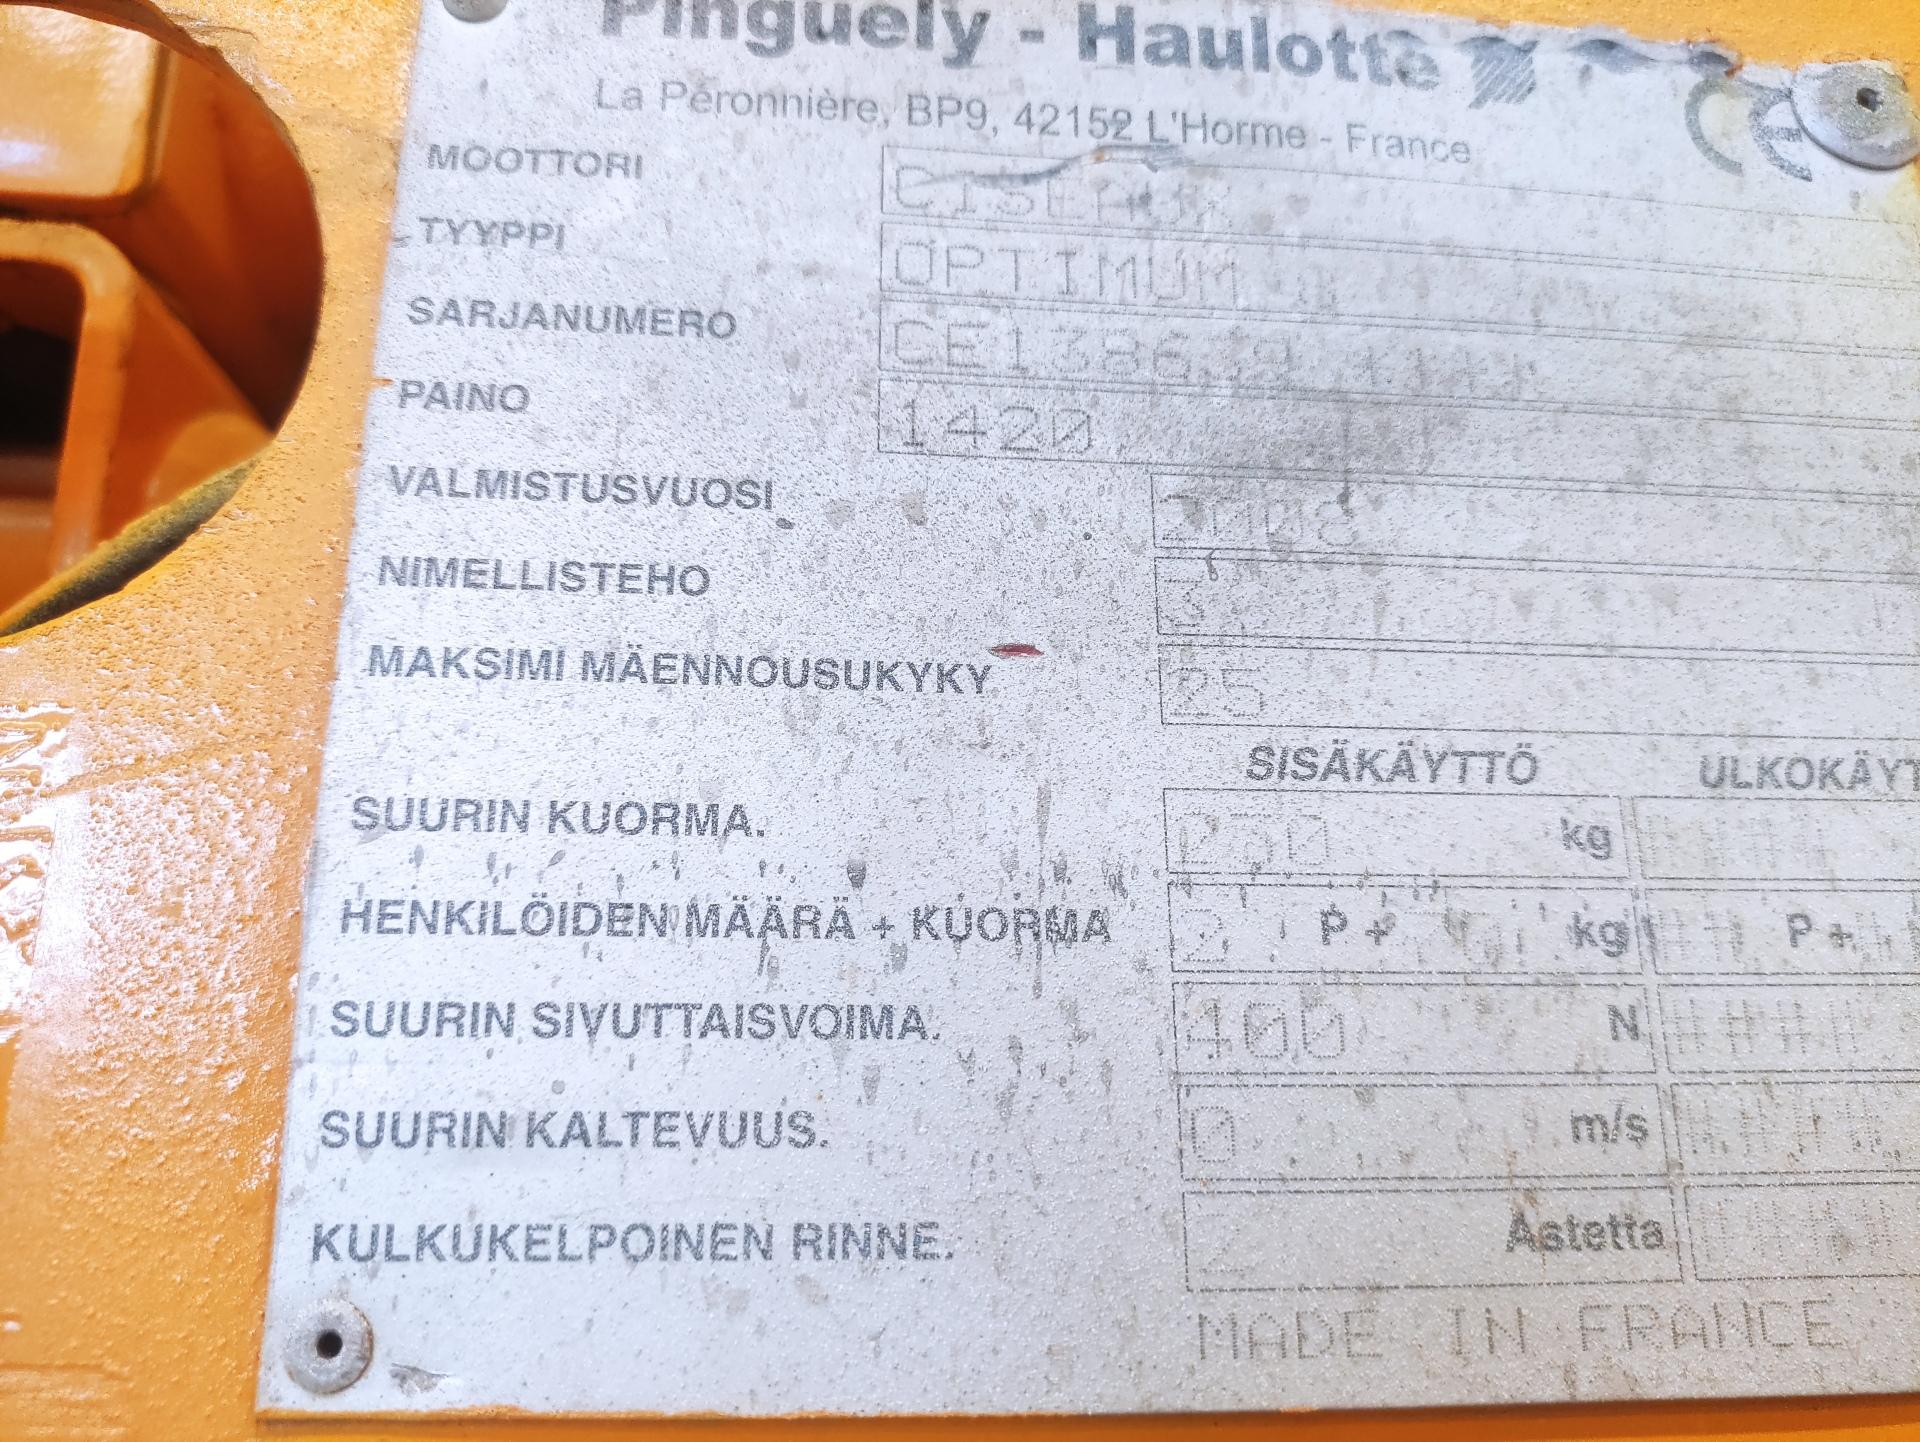 Pinguely - Haulotte
La Péronnière, BP9, 42152 L'Horme - France
CE
MOOTTORI CISEAUX
TYYPPI OPTIMUM
SARJANUMERO
PAINO 1420
VALMISTUSVUOSI
NIMELLISTEHO 3
MAKSIMI MÄENNOUSUKYKY 25
SISÄKÄYTTÖ ULKOKÄYT
SUURIN KUORMA. 230 kg
HENKILÖIDEN MÄÄRÄ + KUORMA 2 P + kg P +
SUURIN SIVUTTAISVOIMA. 400 N
SUURIN KALTEVUUS. 0 m/s
KULKUKELPOINEN RINNE. 2 Astetta
MADE IN FRANCE